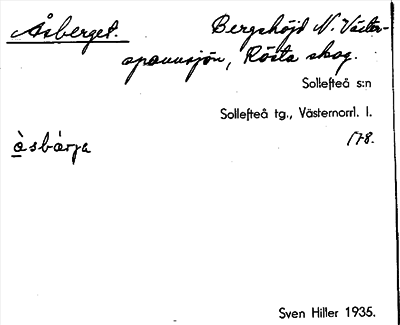 Åsberget. Bergshöjd N. Väster-
spannsjön, Rösta skog.
Sollefteå s:n
Sollefteå tg., Västernorrl. l.
178.
åsbárja
Sven Hiller 1935.